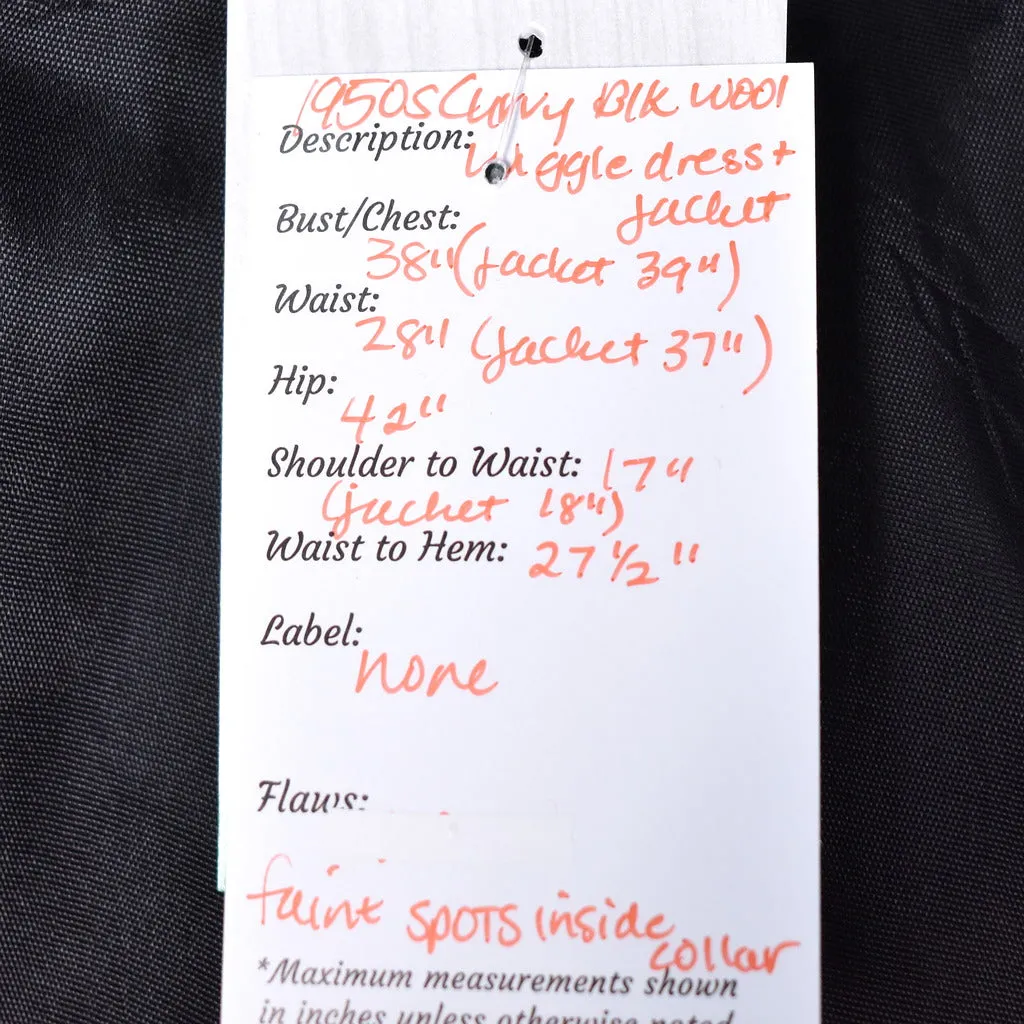 1950s Curvy Blk wool
Description: wiggle dress +
jacket
Bust/Chest:
38" (jacket 39")
Waist:
28" (jacket 37")
Hip:
42"
Shoulder to Waist: 17"
(jacket 18")
Waist to Hem: 27 1/2"
Label:
none
Flaws:
faint spots inside
collar
*Maximum measurements shown
in inches unless otherwise noted